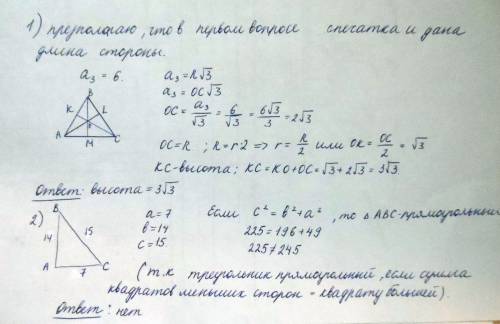 1) предполагаю, что в первом вопросе опечатка и дана
длина стороны.
a₃ = 6.
a₃ = R√3
a₃ = OC√3
OC = a₃/√3 = 6/√3 = 6√3/3 = 2√3
B
K L
A M C
OC = R ; R = r2 => r = R/2 или OK = OC/2 = √3
KC - высота; KC = KO + OC = √3 + 2√3 = 3√3.
Ответ: высота = 3√3
2) B
14 15
A 7 C
a = 7
b = 14
c = 15.
Если c² = b² + a², то △ABC - прямоугольный
225 = 196 + 49
225 ≠ 245
(т.к треугольник прямоугольный, если сумма
квадратов меньших сторон = квадрату большей).
Ответ: нет